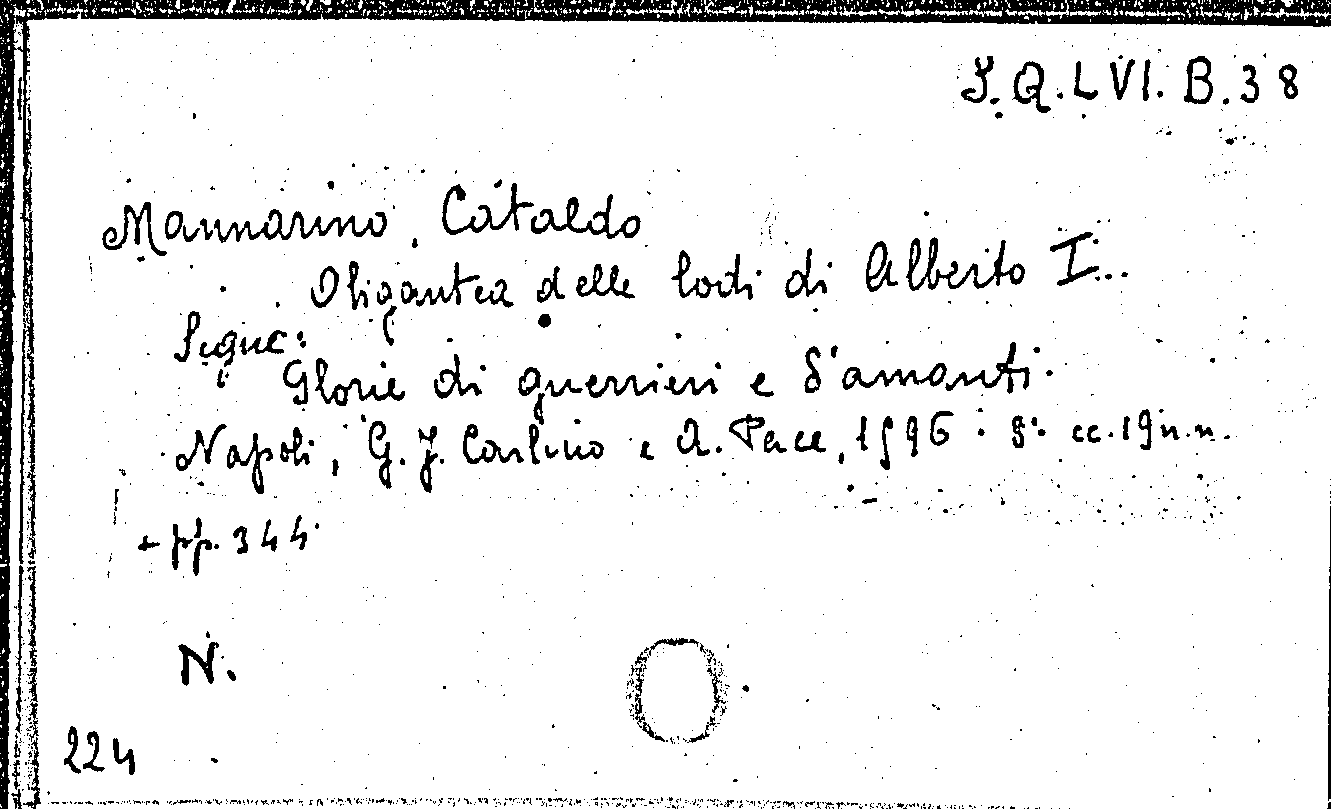 S.Q.LVI.B.38
Mannarino, Cataldo
Oligantea delle lodi di Alberto I...
Segue:
Glorie di guerrieri e d'amanti.
Napoli, G. J. Carlino e A. Pace, 1596. 8° cc. 19 n.n.
+ pp. 344
N.
224